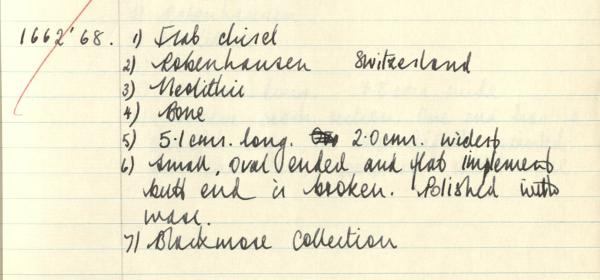 1662'68. 1) Flat chisel
2) Robenhausen Switzerland
3) Neolithic
4) Bone
5) 5.1cms. long. 2.0cms. widest
6) Small, oval ended and flat implement
butt end is broken. Polished with
wear.
7) Blackmore Collection